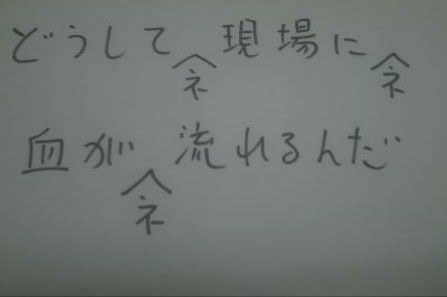 どうしてネ現場にネ
血がネ流れるんだ